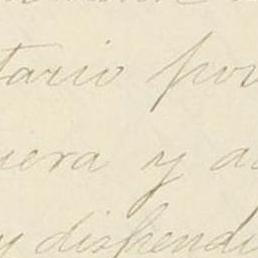 tario por
uera y a
y dispendi